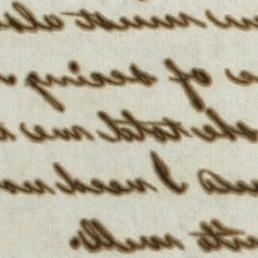 must als
of seeing
she told me
I need no
ite well.